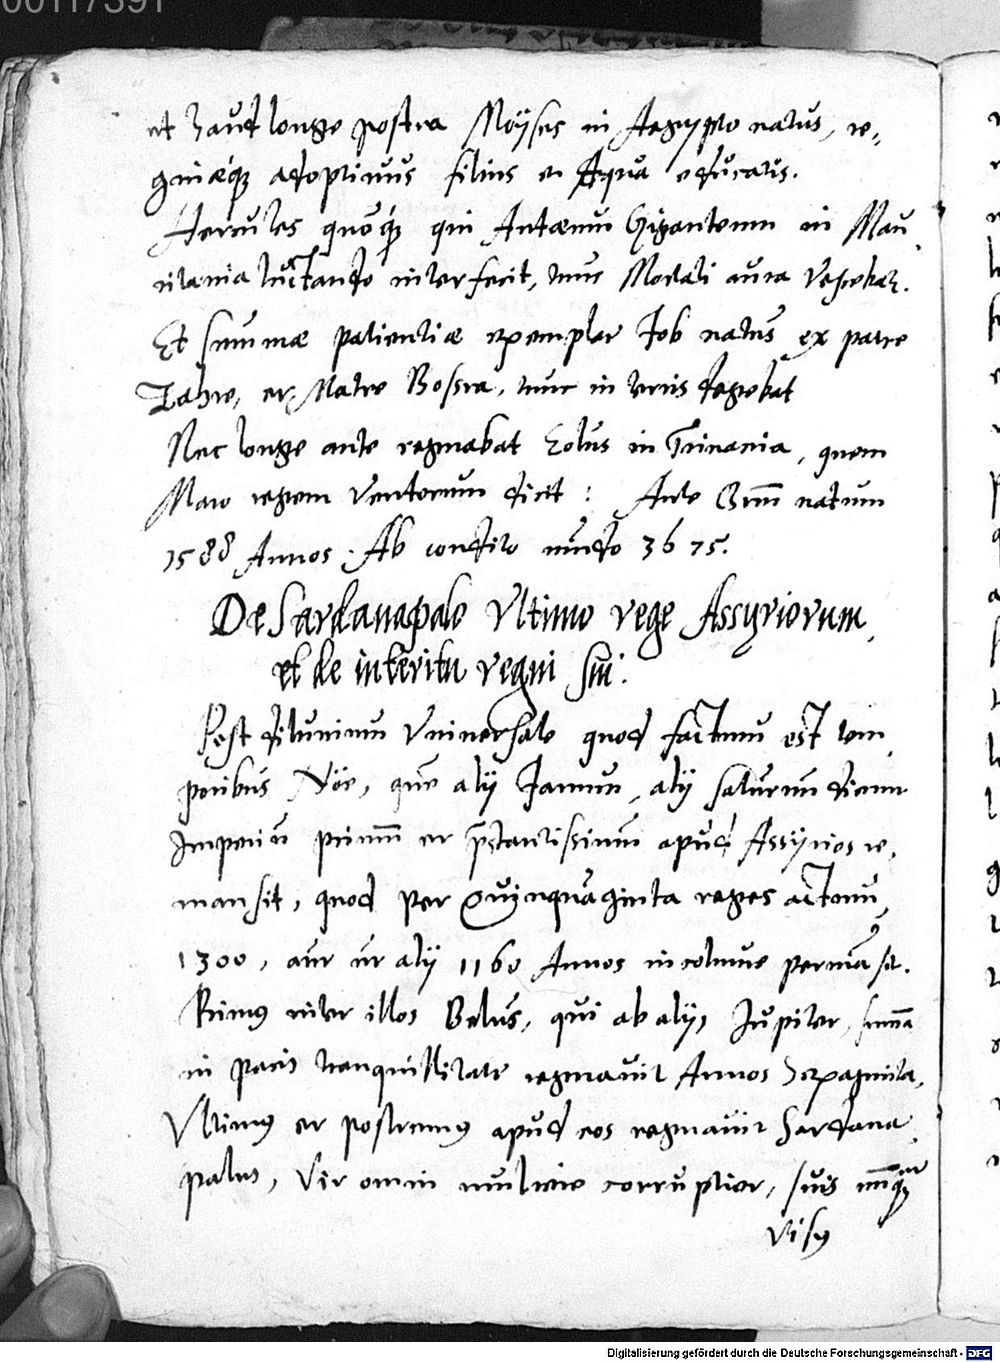 00117391
et haud longe postea Moÿses in Aegypto natus, re,
ginæq́ue adoptiuus filius ex Aqua educatus.
Hercules quoq́ue qui Antæum Gigantemm in Mau,
ritania luctando interfecit, tunc Mortali aura Vescebat.
Et summæ patientiæ exemplar Iob natus ex patre
Zahre, et Matre Bossra, tunc in terris degebat
Nec longe ante regnabat Eolus in Trinacria, quem
Maro regem Ventorum dicit: Ante Chrm̃ natum
1588 Annos. Ab condito mũdo 3675.
De Sardanapalo Vltimo rege Assyriorum,
et de interitu regni sui.
Post diluuium Vniuersale quod factum est tem,
poribus Nöe, quẽ alÿ Ianum, alÿ Saturnũ dicunt
Imperiũ primũ et p̃stantissimũ apud Assÿrios re,
mansit, quod per Quinquaginta reges actum,
1300, aut ut alÿ 1160 Annos incolume permãsit.
Primus inter illos Belus, qui ab alÿs Iupiter, summa
in pacis tranquillitate regnauit Annos Sexaginta,
Vltimus et postremus apud eos regnauit Sardana,
palus, Vir omni muliere corruptior, suis nũq̃
Visus
Digitalisierung gefördert durch die Deutsche Forschungsgemeinschaft - DFG